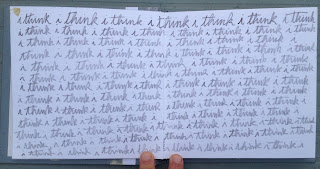 i think i think i think i think i think i think i think
i think i think i think i think i think i think i think i think
i think i think i think i think i think i think i think i think
i think i think i think i think i think i think i think i think
i think i think i think i think i think i think i think i think
i think i think i think i think i think i think i think i think
i think i think i think i think i think i think i think i think
i think i think i think i think i think i think i think i think
i think i think i think i think i think i think i think i think
think i think i think i think i think i think i think i think
think i think i think i think i think i think i think i think
i think i think i think i think i think i think i think i